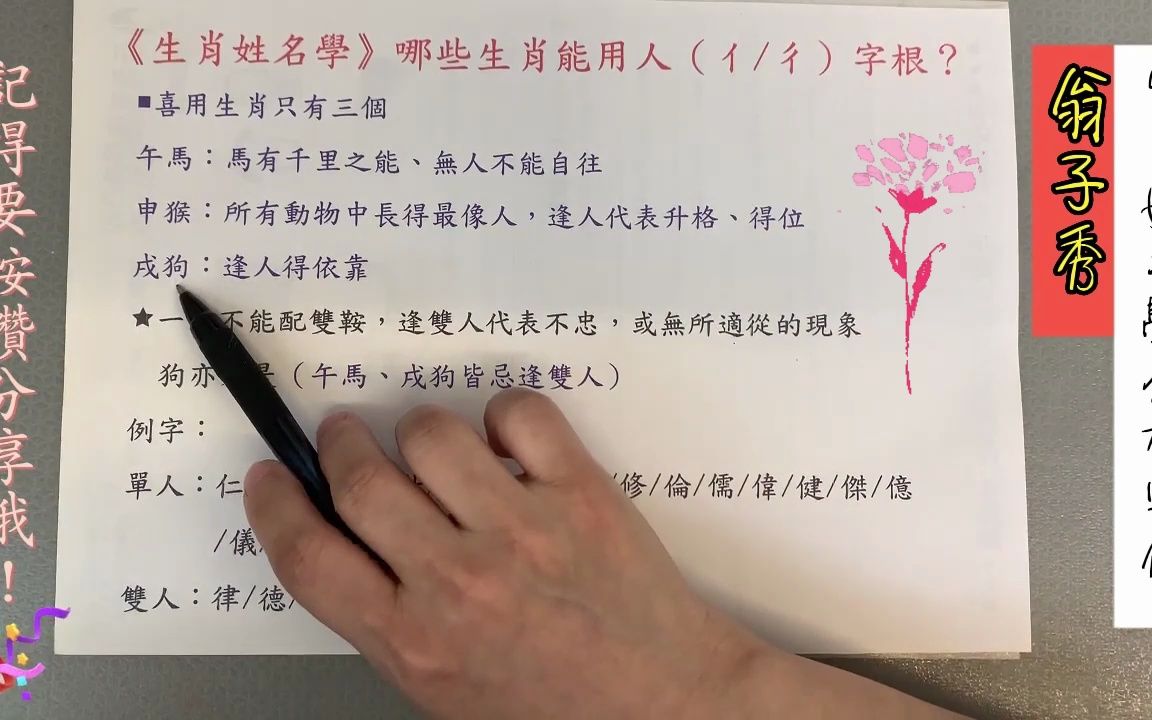 《生肖姓名學》哪些生肖能用人（亻/彳）字根？
■喜用生肖只有三個
午馬：馬有千里之能、無人不能自往
申猴：所有動物中長得最像人，逢人代表升格、得位
戌狗：逢人得依靠
★一 不能配雙鞍，逢雙人代表不忠，或無所適從的現象
狗亦 是（午馬、戌狗皆忌逢雙人）
例字：
單人：仁 /修/倫/儒/偉/健/傑/億
/儀
雙人：律/德/
記得要按讚分享哦！
翁子秀